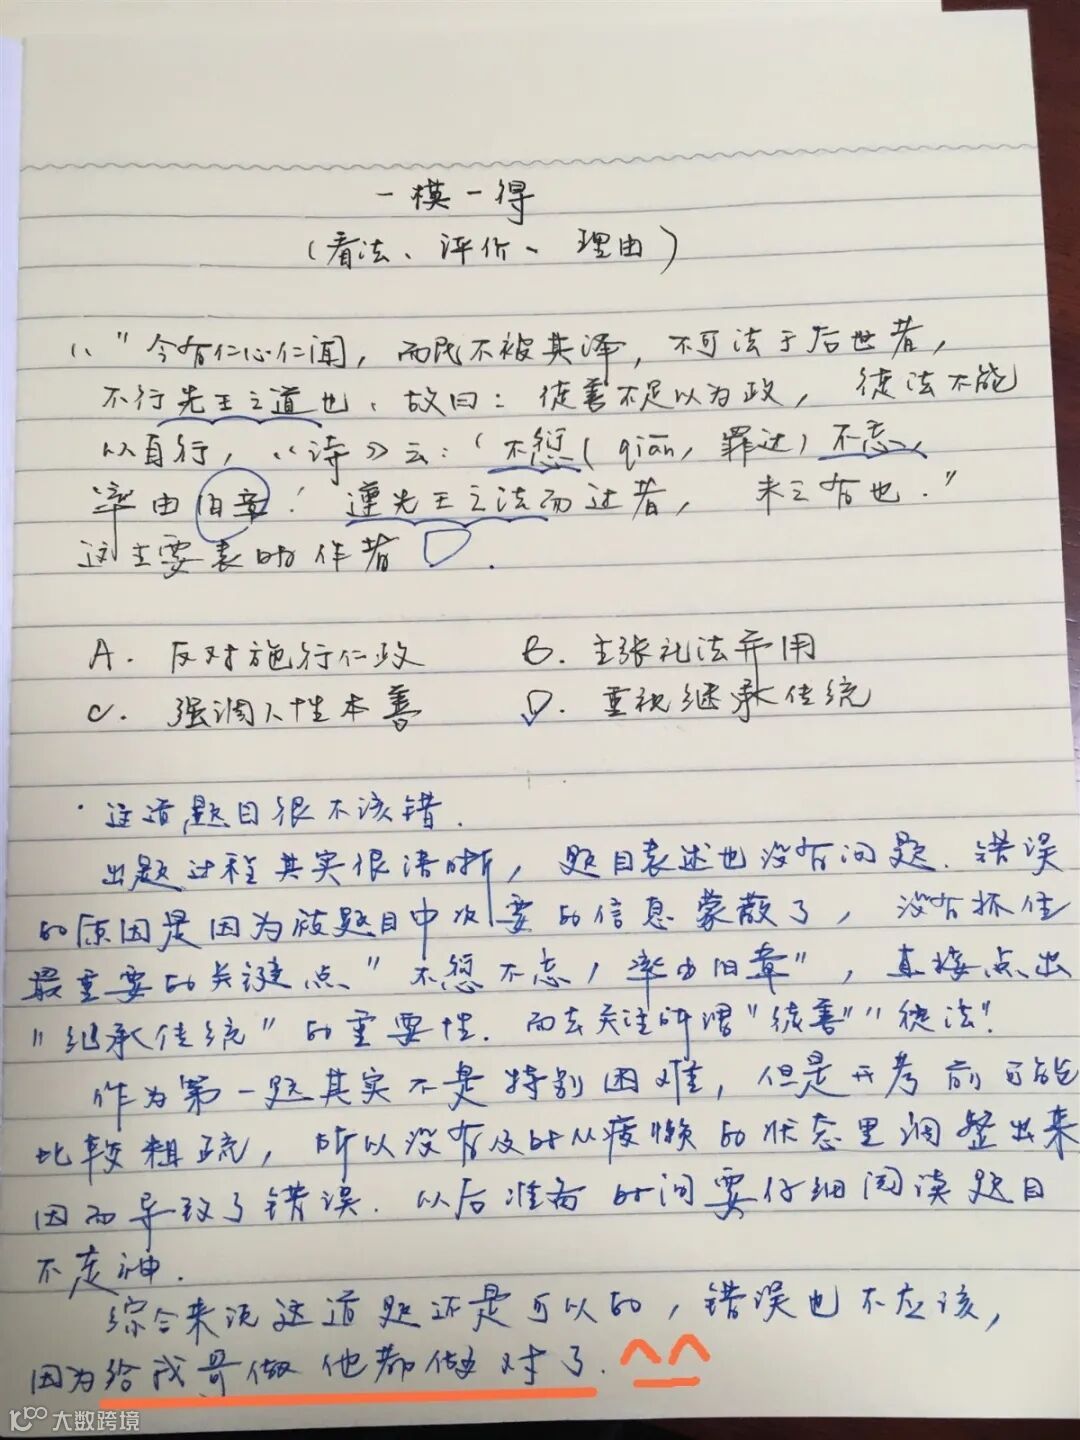 一模一得
(看法、评价、理由)
1、"今有仁心仁闻，而民不被其泽，不可法于后世者，
不行先王之道也。故曰：徒善不足以为政，徒法不能
以自行，《诗》云：'不愆(qiān，罪过)不忘，
率由旧章'遵先王之法而过者，未之有也。"
这主要表明作者
A. 反对施行仁政 B. 主张礼法并用
C. 强调人性本善 D. 重视继承传统
·这道题目很不该错.
出题过程其实很清晰，题目表述也没有问题.错误
的原因是因为被题目中次要的信息蒙蔽了，没有抓住
最重要的关键点"不愆不忘，率由旧章"，直接点出
"继承传统"的重要性.而去关注所谓"徒善""徒法".
作为第一题其实不是特别困难，但是开考前可能
比较粗疏，所以没有及时从疲懒的状态里调整出来
因而导致了错误.以后准备时间要仔细阅读题目
不走神.
综合来说这道题还是可以的，错误也不应该，
因为给我哥做他都做对了.^^
大数跨境